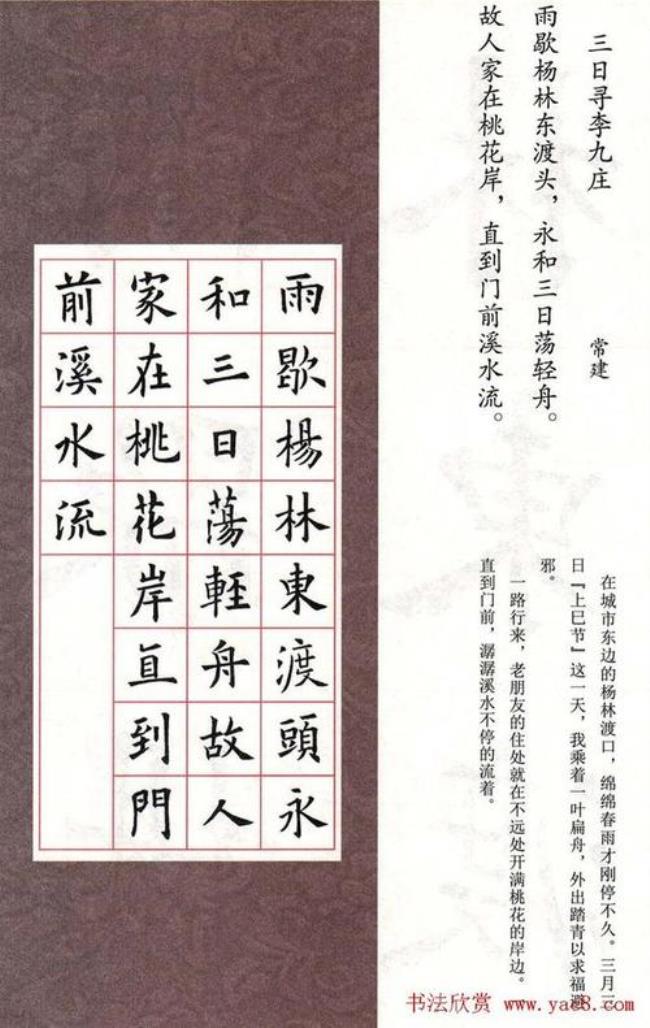 三日寻李九庄
常建
雨歇杨林东渡头，永和三日荡轻舟。
故人家在桃花岸，直到门前溪水流。
在城市东边的杨林渡口，绵绵春雨才刚停不久。三月三
日『上巳节』这一天，我乘着一叶扁舟，外出踏青以求福避
邪。
一路行来，老朋友的住处就在不远处开满桃花的岸边。
直到门前，潺潺溪水不停的流着。
雨歇楊林東渡頭永
和三日蕩輕舟故人
家在桃花岸直到門
前溪水流
书法欣赏 www.yac8.com